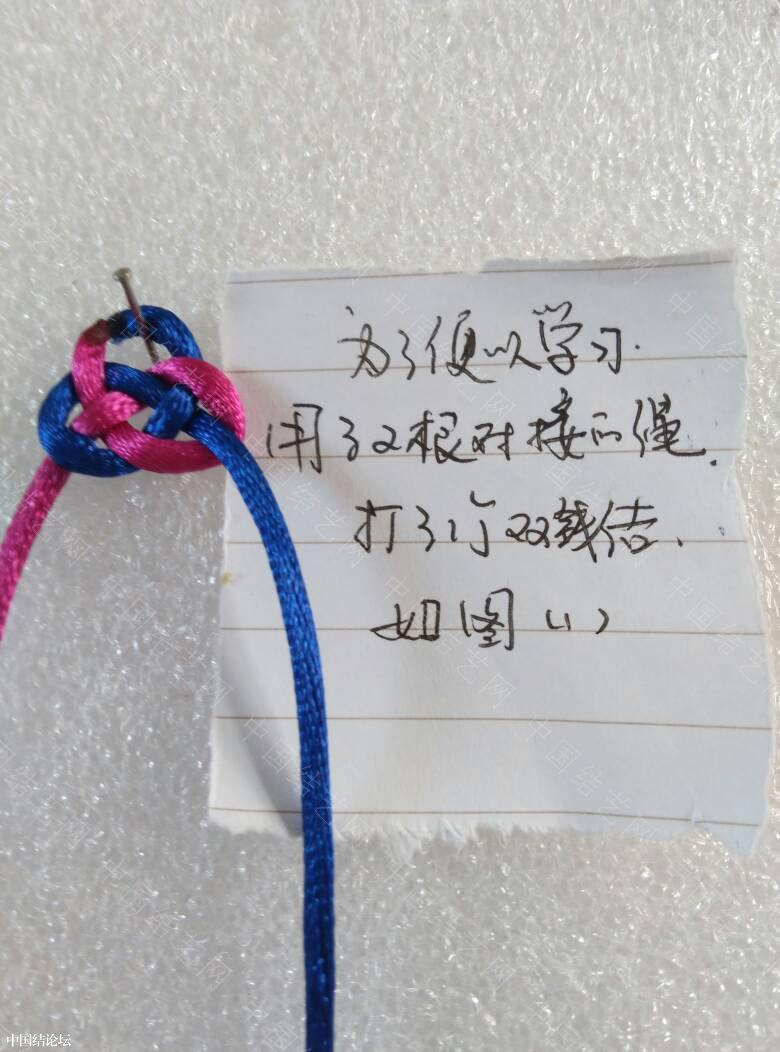 为了便以学习.
用了2根对接的绳.
打了个双钱结.
如图(1)
中国结论坛
中国结艺网